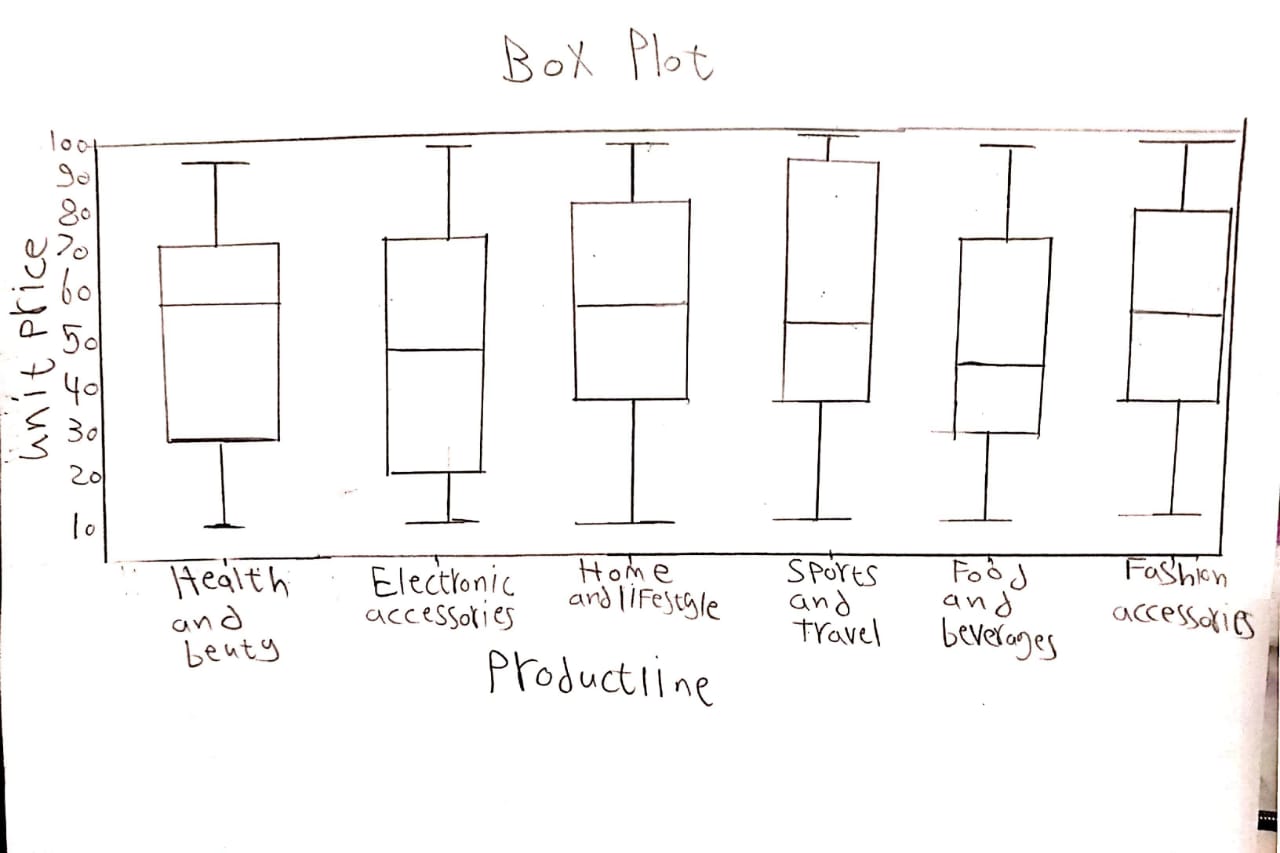 Box Plot
100
90
80
70
60
50
40
30
20
10
unit price
Health
and
beuty
Electronic
accessories
Home
and lifestyle
Sports
and
travel
Food
and
beverages
Fashion
accessories
Productline